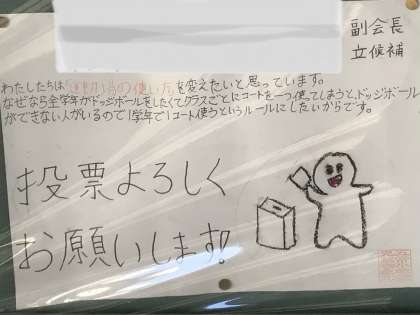 副会長
立候補
わたしたちは「運動場の使い方」を変えたいと思っています。
なぜなら全学年がドッジボールをしたくてクラスごとにコートを一つ使ってしまうと、ドッジボール
ができない人がいるので1学年で1コート使うというルールにしたいからです。
投票よろしく
お願いします!